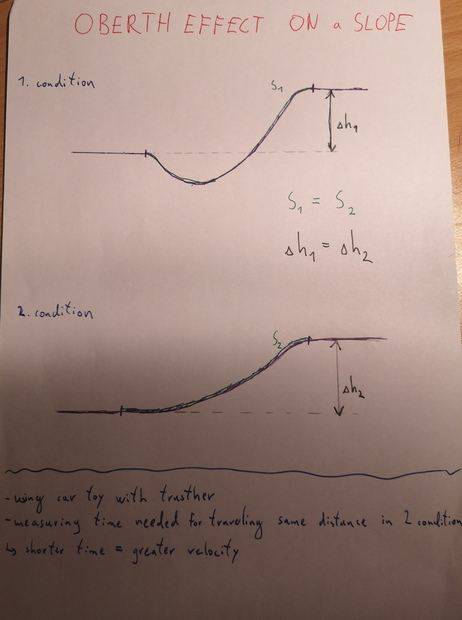 OBERTH EFFECT ON a SLOPE
1. condition
S₁
Δh₁
S₁ = S₂
Δh₁ = Δh₂
2. condition
S₂
Δh₂
- using car toy with trusther
- measuring time needed for traveling same distance in 2 condition
↳ shorter time = greater velocity